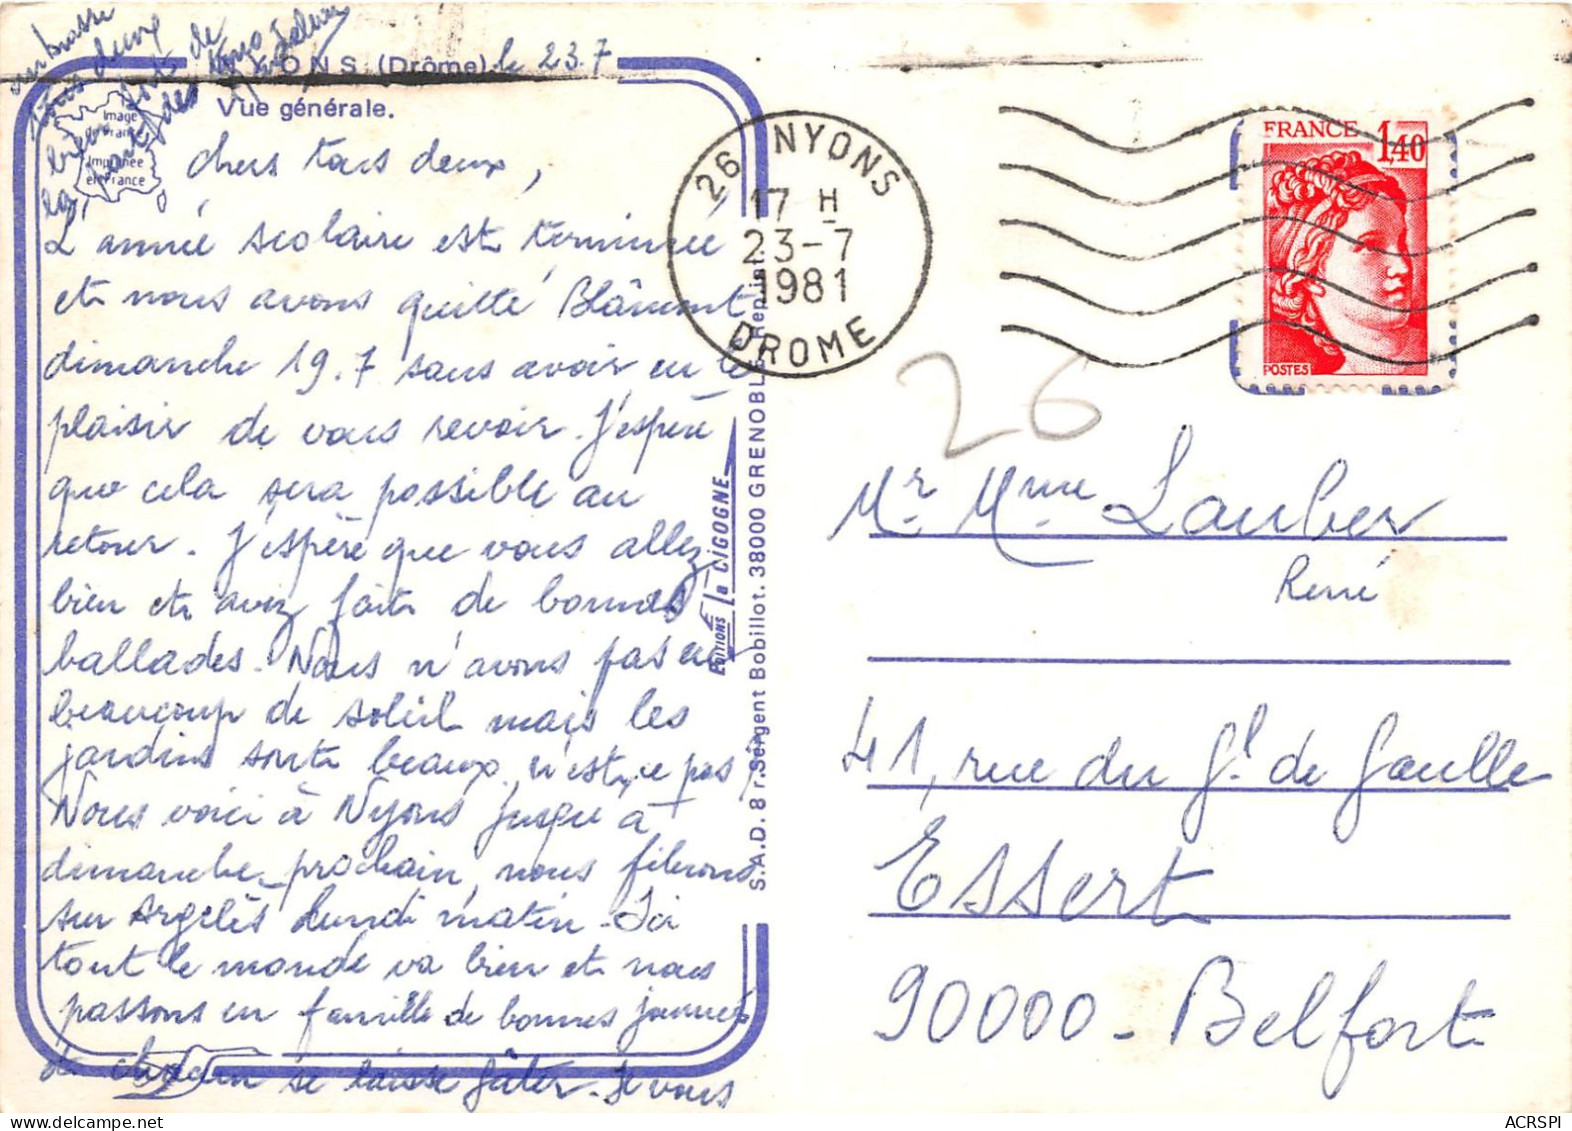 NYONS (Drôme) le 23.7
Vue générale.
Image
de France
Imprimée
en France
chers tous deux,
L'année scolaire est terminée
et nous avons quitté Blâmont
dimanche 19.7 sans avoir eu le
plaisir de vous revoir. J'espère
que cela sera possible au
retour. J'espère que vous allez
bien et avez fait de bonnes
ballades. Nous n'avons pas eu
beaucoup de soleil mais les
jardins sont beaux, n'est-ce pas ?
Nous voici à Nyons jusqu'à
dimanche prochain, nous filerons
sur Argelès lundi matin. Ici
tout le monde va bien et nous
passons en famille de bonnes journées
chacun se laisse gâter. Je vous
embrasse
tous deux
bien fort de
la part des
EDITIONS la CIGOGNE
S.A.D. 8 r. Sergent Bobillot. 38000 GRENOBLE Repint.
26 NYONS
17 H
23-7
1981
DROME
FRANCE 1,40
POSTES
26
Mr Mme Lauber
René
41, rue du Gl de Gaulle
Essert
90000 - Belfort
ACRSPI